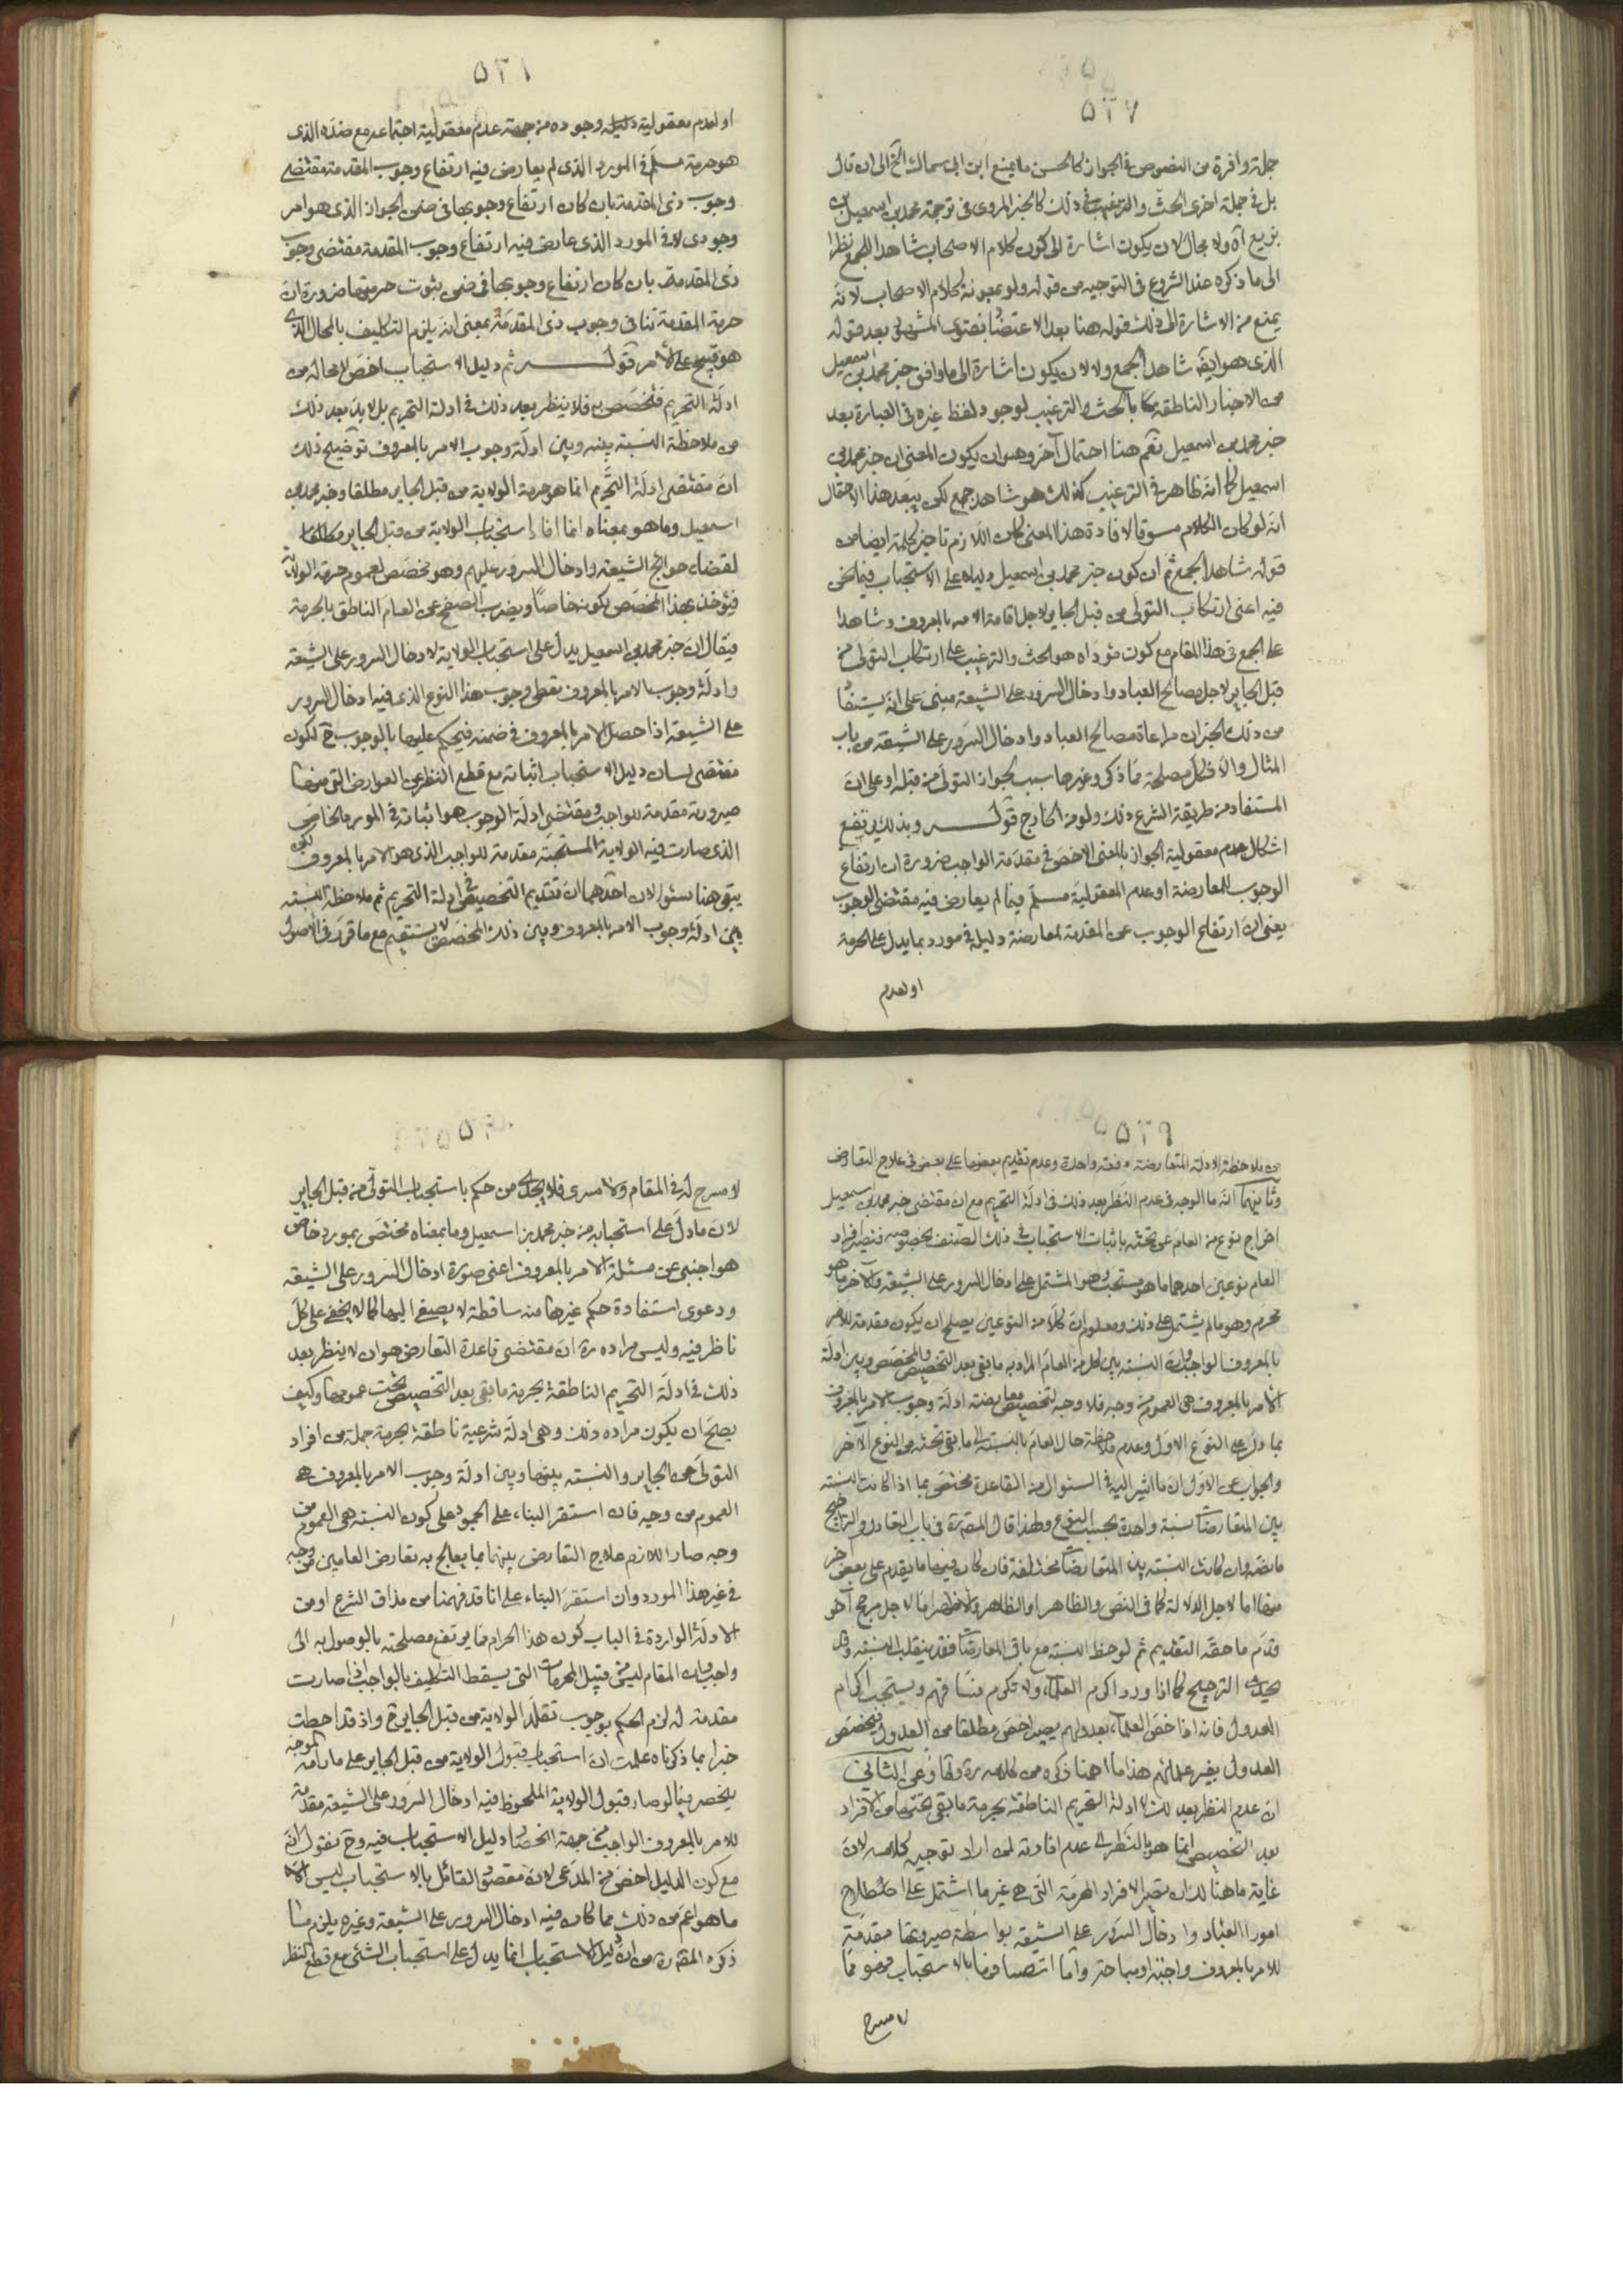 ۵۲۷
جملة وافرة من النصوص في الجواز كالحسن ما يمنع ابن ابي سماك الخ الى ان قال
بل في جملة اخرى الحث والترغيب في ذلك كالخبر المروى في ترجمة محمد بن اسمعيل بن
بزيع آه ولا مجال لان يكون اشارة الى كون كلام الاصحاب شاهدا للجمع نظرا
الى ما ذكره عند الشروع في التوجيه من قوله ولو بمعونة كلام الاصحاب لانه
يمنع من الاشارة الى ذلك قوله هنا بعد الاعتضاد بفتوى المشهور بعد قوله
الذى هو ايضا شاهد الجمع ولا لان يكون اشارة الى ما وافق خبر محمد بن اسمعيل
من الاخبار الناطقة بالحث والترغيب لوجود لفظ غيره في العبارة بعد
خبر محمد بن اسمعيل نعم هنا احتمال آخر وهو ان يكون المعنى ان خبر محمد بن
اسمعيل كما انه ظاهر في الترغيب كذلك هو شاهد جمع لكن يبعد هذا الاحتمال
انه لو كان الكلام مسوقا لافادة هذا المعنى كان اللازم تاخير كلمة ايضا من
قوله شاهد الجمع ثم ان كون خبر محمد بن اسمعيل دليلا على الاستحباب فيما نحن
فيه اعنى ارتكاب التولى من قبل الجاير لاجل اقامة الامر بالمعروف وشاهدا
على الجمع في هذا المقام مع كون مؤداه هو الحث والترغيب على ارتكاب التولى من
قبل الجاير لاجل مصالح العباد وادخال السرور على الشيعة مبنى على انه يستفاد
من ذلك الخبر ان مراعاة مصالح العباد وادخال السرور على الشيعة من باب
المثال والا فكل مصلحة مما ذكر وغيرها سبب لجواز التولى من قبله او على ان
المستفاد من طريقة الشرع ذلك ولو من الخارج قوله وبذلك يرتفع
اشكال عدم معقولية الجواز بالمعنى الاخص في مقدمة الواجب ضرورة ان ارتفاع
الوجوب للمعارضة او عدم المعقولية مسلم فيما لم يعارض فيه مقتضى الوجوب
يعنى ان ارتفاع الوجوب عن المقدمة لمعارضة دليله في مورد بما يدل على الحرمة
او لعدم
۵۲۸
او لعدم معقولية دليل وجوده من جهة عدم معقولية اجتماعه مع ضده الذى
هو حرمة مسلم في المورد الذى لم يعارض فيه ارتفاع وجوب المقدمة مقتضى
وجوب ذى المقدمة بان كان ارتفاع وجوبها في ضمن الجواز الذى هو امر
وجودى لا في المورد الذى عارض فيه ارتفاع وجوب المقدمة مقتضى وجوب
ذى المقدمة بان كان ارتفاع وجوبها في ضمن ثبوت حرمتها ضرورة ان
حرمة المقدمة تنافى وجوب ذى المقدمة بمعنى انه يلزم التكليف بالمحال الذى
هو قبيح على الآمر قوله ثم دليل الاستحباب اخص لا محالة من
ادلة التحريم فتخصص به فلا ينظر بعد ذلك في ادلة التحريم بل لا بد بعد ذلك
من ملاحظة النسبة بينه وبين ادلة وجوب الامر بالمعروف توضيح ذلك
ان مقتضى ادلة التحريم انما هو حرمة الولاية من قبل الجاير مطلقا وخبر محمد بن
اسمعيل وما هو بمعناه انما افاد استحباب الولاية من قبل الجاير مطلقا
لقضاء حوائج الشيعة وادخال السرور عليهم وهو مخصص لعموم حرمة الولاية
فيؤخذ بهذا المخصص لكونه خاصا ويضرب الصفح عن العام الناطق بالحرمة
فيقال ان خبر محمد بن اسمعيل يدل على استحباب الولاية لادخال السرور على الشيعة
وادلة وجوب الامر بالمعروف تعطى وجوب هذا النوع الذى فيه ادخال السرور
على الشيعة اذا حصل الامر بالمعروف في ضمنه فيحكم عليها بالوجوب ح لكون
مقتضى لسان دليل الاستحباب اثباته مع قطع النظر عن العوارض التى منها
صيرورته مقدمة للواجب ومقتضى ادلة الوجوب هو اثباته في المورد الخاص
الذى صارت فيه الولاية المستحبة مقدمة للواجب الذى هو الامر بالمعروف لكن
يبقى هنا سئوالان احدهما ان تقديم التخصيص في ادلة التحريم ثم ملاحظة النسبة
بين ادلة وجوب الامر بالمعروف وبين ذلك المخصص لا يستقيم مع ما قرر في الاصول
۵۲۹
من ملاحظة الادلة المتعارضة دفعة واحدة وعدم تقديم بعضها على بعض في علاج التعارض
وثانيهما انه ما الوجه في عدم النظر بعد ذلك في ادلة التحريم مع ان مقتضى خبر محمد بن اسمعيل
اخراج نوع من العام عن تحته باثبات الاستحباب في ذلك الصنف بخصوصه فتصير افراد
العام نوعين احدهما ما هو مستحب وهو المشتمل على ادخال السرور على الشيعة والآخر ما هو
محرم وهو ما لم يشتمل على ذلك ومعلوم ان كلا من النوعين يصلح ان يكون مقدمة للامر
بالمعروف الواجب وان النسبة بين كل من العام المراد به ما بقى بعد التخصيص والمخصص وبين ادلة
الامر بالمعروف هى العموم من وجه فلا وجه لتخصيص معارضة ادلة وجوب الامر بالمعروف
بما دل على النوع الاول وعدم ملاحظة حال العام بالنسبة الى ما بقى تحته من النوع الآخر
والجواب عن الاول ان ما اشير اليه في السئوال من القاعدة مختص بما اذا كانت النسبة
بين المتعارضات نسبة واحدة بحسب النوع ولهذا قال المص ره في باب التعادل والتراجيح
ما نصه وان كانت النسبة بين المتعارضات مختلفة فان كان فيها ما يقدم على بعض آخر
منها اما لاجل الدلالة كما في النص والظاهر او الظاهر والاظهر اما لاجل مرجح آخر
قدم ما حقه التقديم ثم لوحظ النسبة مع باقى المعارضات فقد ينقلب النسبة وقد
يحدث الترجيح كما اذا ورد اكرم العلماء ولا تكرم فساقهم ويستحب اكرام
العدول فانه اذا خص العلماء بعدولهم يصير اخص مطلقا من العدول فيخصص
العدول بغير علمائهم هذا ما اهمنا ذكره من كلامه ره وعن الثانى
ان عدم النظر بعد ذلك لادلة التحريم الناطقة بحرمة ما بقى تحتها من الافراد
بعد التخصيص انما هو بالنظر الى عدم افادته لمن اراد توجيه كلامهم لان
غاية ما هنالك ان تصير الافراد المحرمة التى هى غير ما اشتمل على اصلاح
امور العباد وادخال السرور على الشيعة بواسطة صيرورتها مقدمة
للامر بالمعروف واجبة او مباحة واما اتصافها بالاستحباب فهو مما
لا مسرح
۵۳۰
لا مسرح له في المقام ولا مسرى فلا يجدى من حكم باستحباب التولى من قبل الجاير
لان ما دل على استحبابه من خبر محمد بن اسمعيل وما بمعناه مختص بمورد خاص
هو اجنبى عن مسئلة الامر بالمعروف اعنى صورة ادخال السرور على الشيعة
ودعوى استفادة حكم غيرها منه ساقطة لا يصغى اليها كما لا يخفى على كل
ناظر فيه وليس مراده ره ان مقتضى قاعدة التعارض هو ان لا ينظر بعد
ذلك في ادلة التحريم الناطقة بحرمة ما بقى بعد التخصيص تحت عمومها وكيف
يصح ان يكون مراده ذلك وهى ادلة شرعية ناطقة بحرمة جملة من افراد
التولى عن الجاير والنسبة بينها وبين ادلة وجوب الامر بالمعروف هى
العموم من وجه فان استقر البناء على الجمود على كون النسبة هى العموم من
وجه صار اللازم علاج التعارض بينهما بما يعالج به تعارض العامين من وجه
في غير هذا المورد وان استقر البناء على انا قد فهمنا من مذاق الشرع او من
الادلة الواردة في الباب كون هذا الحرام مما يرتفع مصلحته بالوصول به الى
واجب وان المقام ليس من قبيل المحرمات التى يسقط التكليف بالواجب اذا صارت
مقدمة له لزم الحكم بوجوب تقلد الولاية من قبل الجاير ح واذ قد احطت
خبرا بما ذكرناه علمت ان استحباب قبول الولاية من قبل الجاير على ما رامه الموجه
ينحصر فيما لو صار قبول الولاية الملحوظ فيه ادخال السرور على الشيعة مقدمة
للامر بالمعروف الواجب من جهة انحصار دليل الاستحباب فيه وح نقول انه
مع كون الدليل اخص من المدعى لان مقصود القائل بالاستحباب ليس الا
ما هو اعم من ذلك مما كان فيه ادخال السرور على الشيعة وغيره يلزم مما
ذكره المص ره من ان دليل الاستحباب انما يدل على استحباب الشئ مع قطع النظر